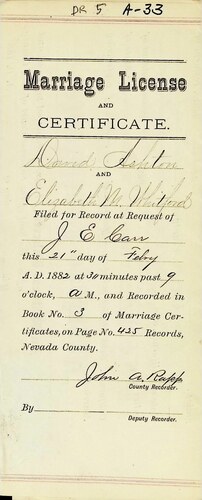 DR 5 A-33
Marriage License
AND
CERTIFICATE.
David Ashton
AND
Elisabeth M. Whitford
Filed for Record at Request of
J E Carr
this 21st day of Feby
A. D. 1882 at 30 minutes past 9
o'clock, A M., and Recorded in
Book No. 3 of Marriage Cer-
tificates, on Page No. 425 Records,
Nevada County.
John A. Rapp
County Recorder.
By
Deputy Recorder.